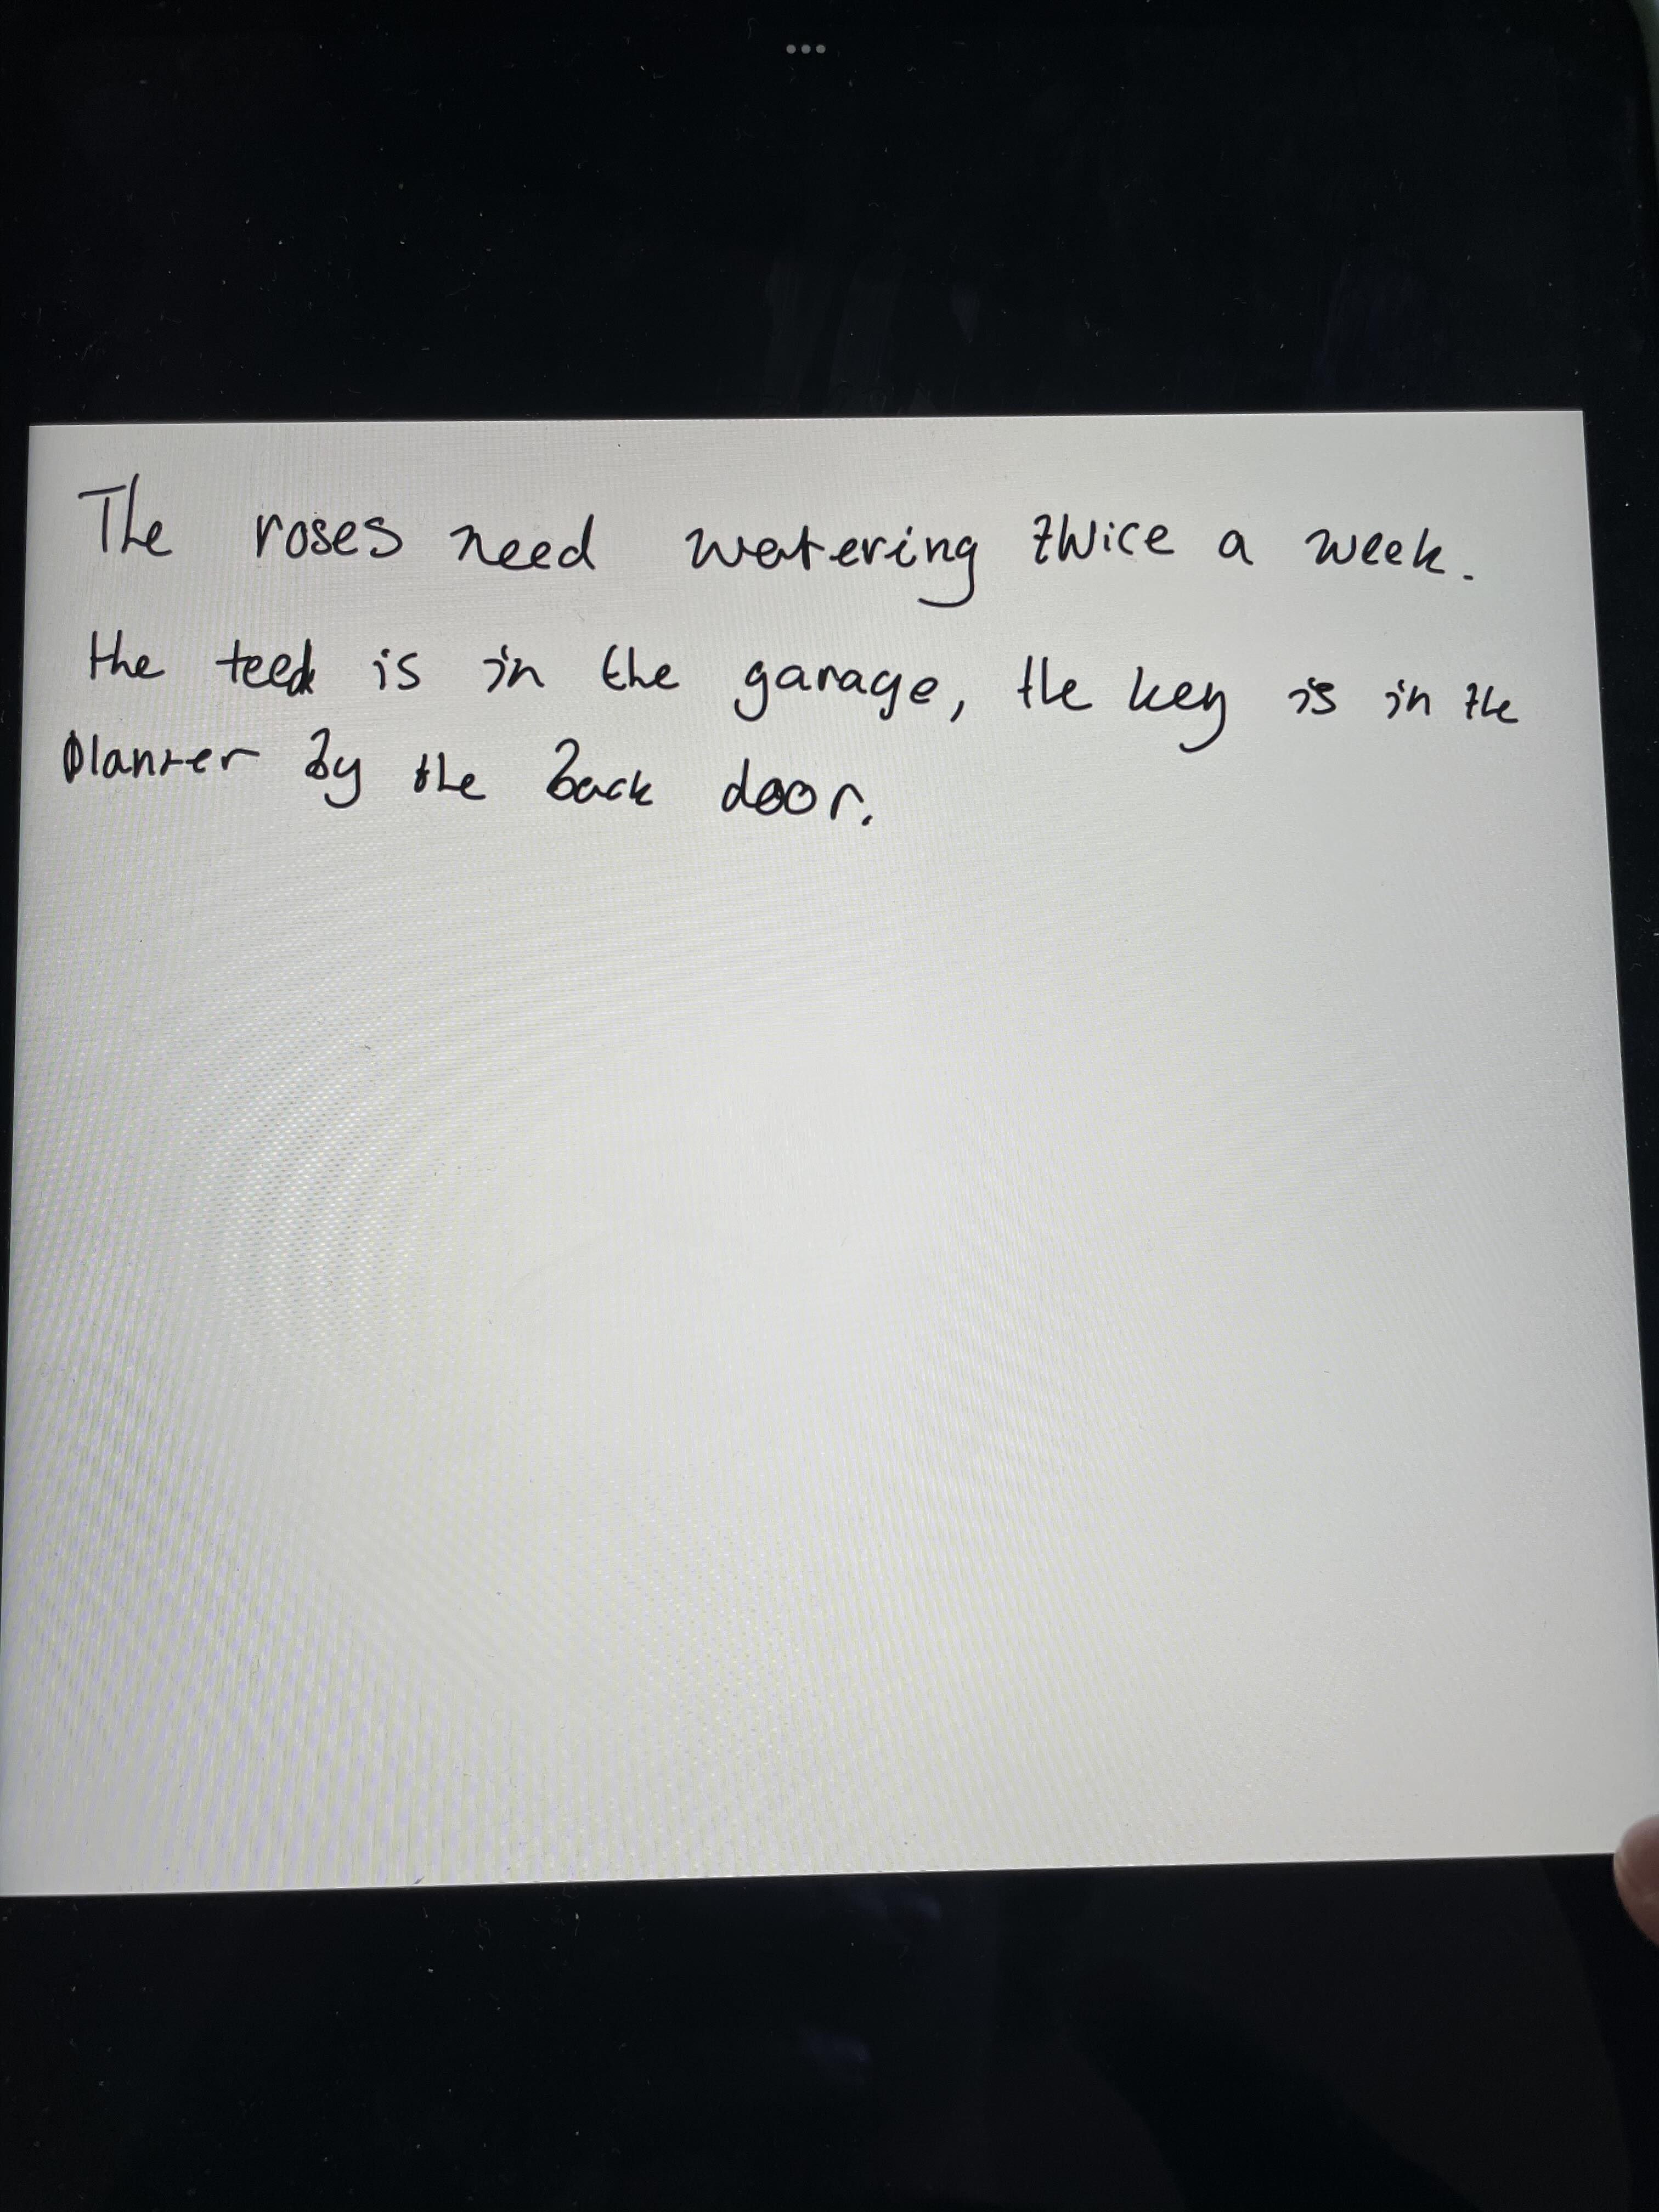 The roses need watering twice a week.
the teed is in the garage, the key is in the
planter by the back door.